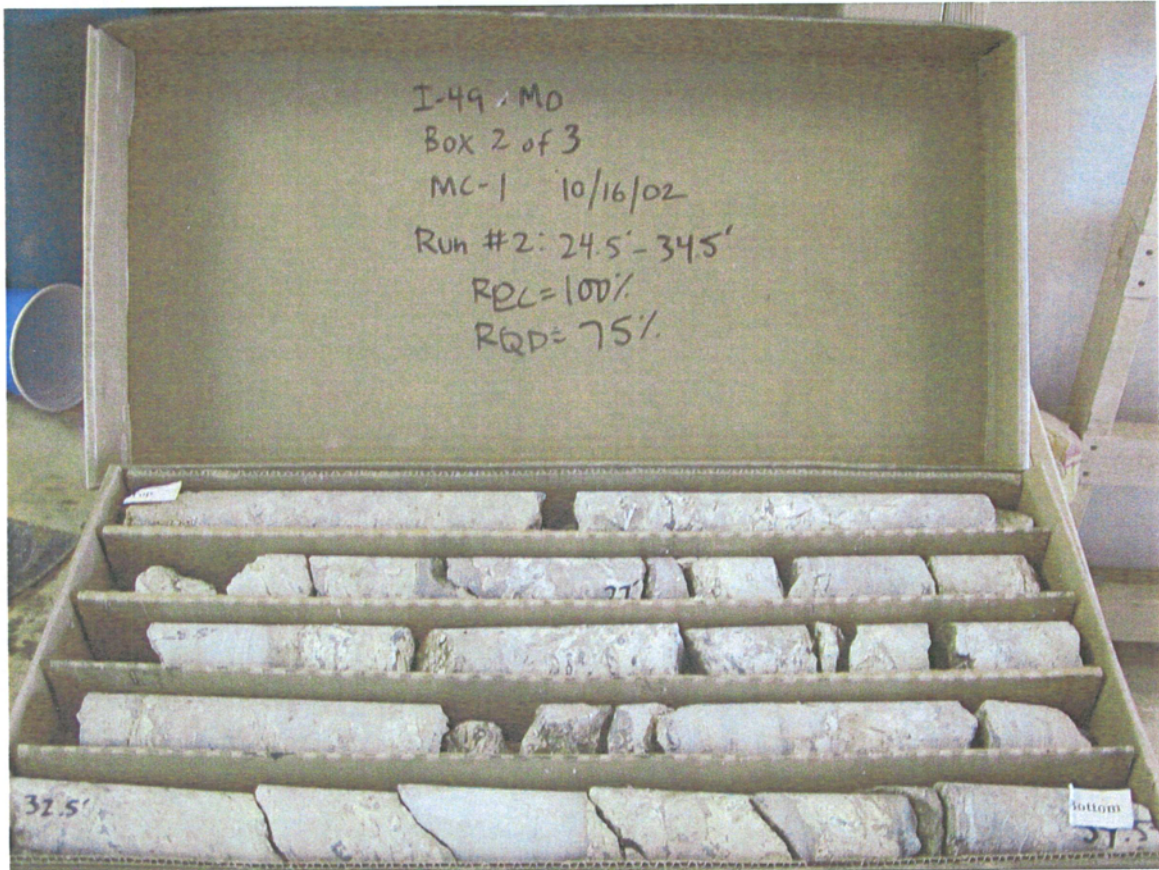 I-49, MO
Box 2 of 3
MC-1 10/16/02
Run #2: 24.5' - 34.5'
Rec = 100%
RQD = 75%
Top
27
32.5'
Bottom
34.5